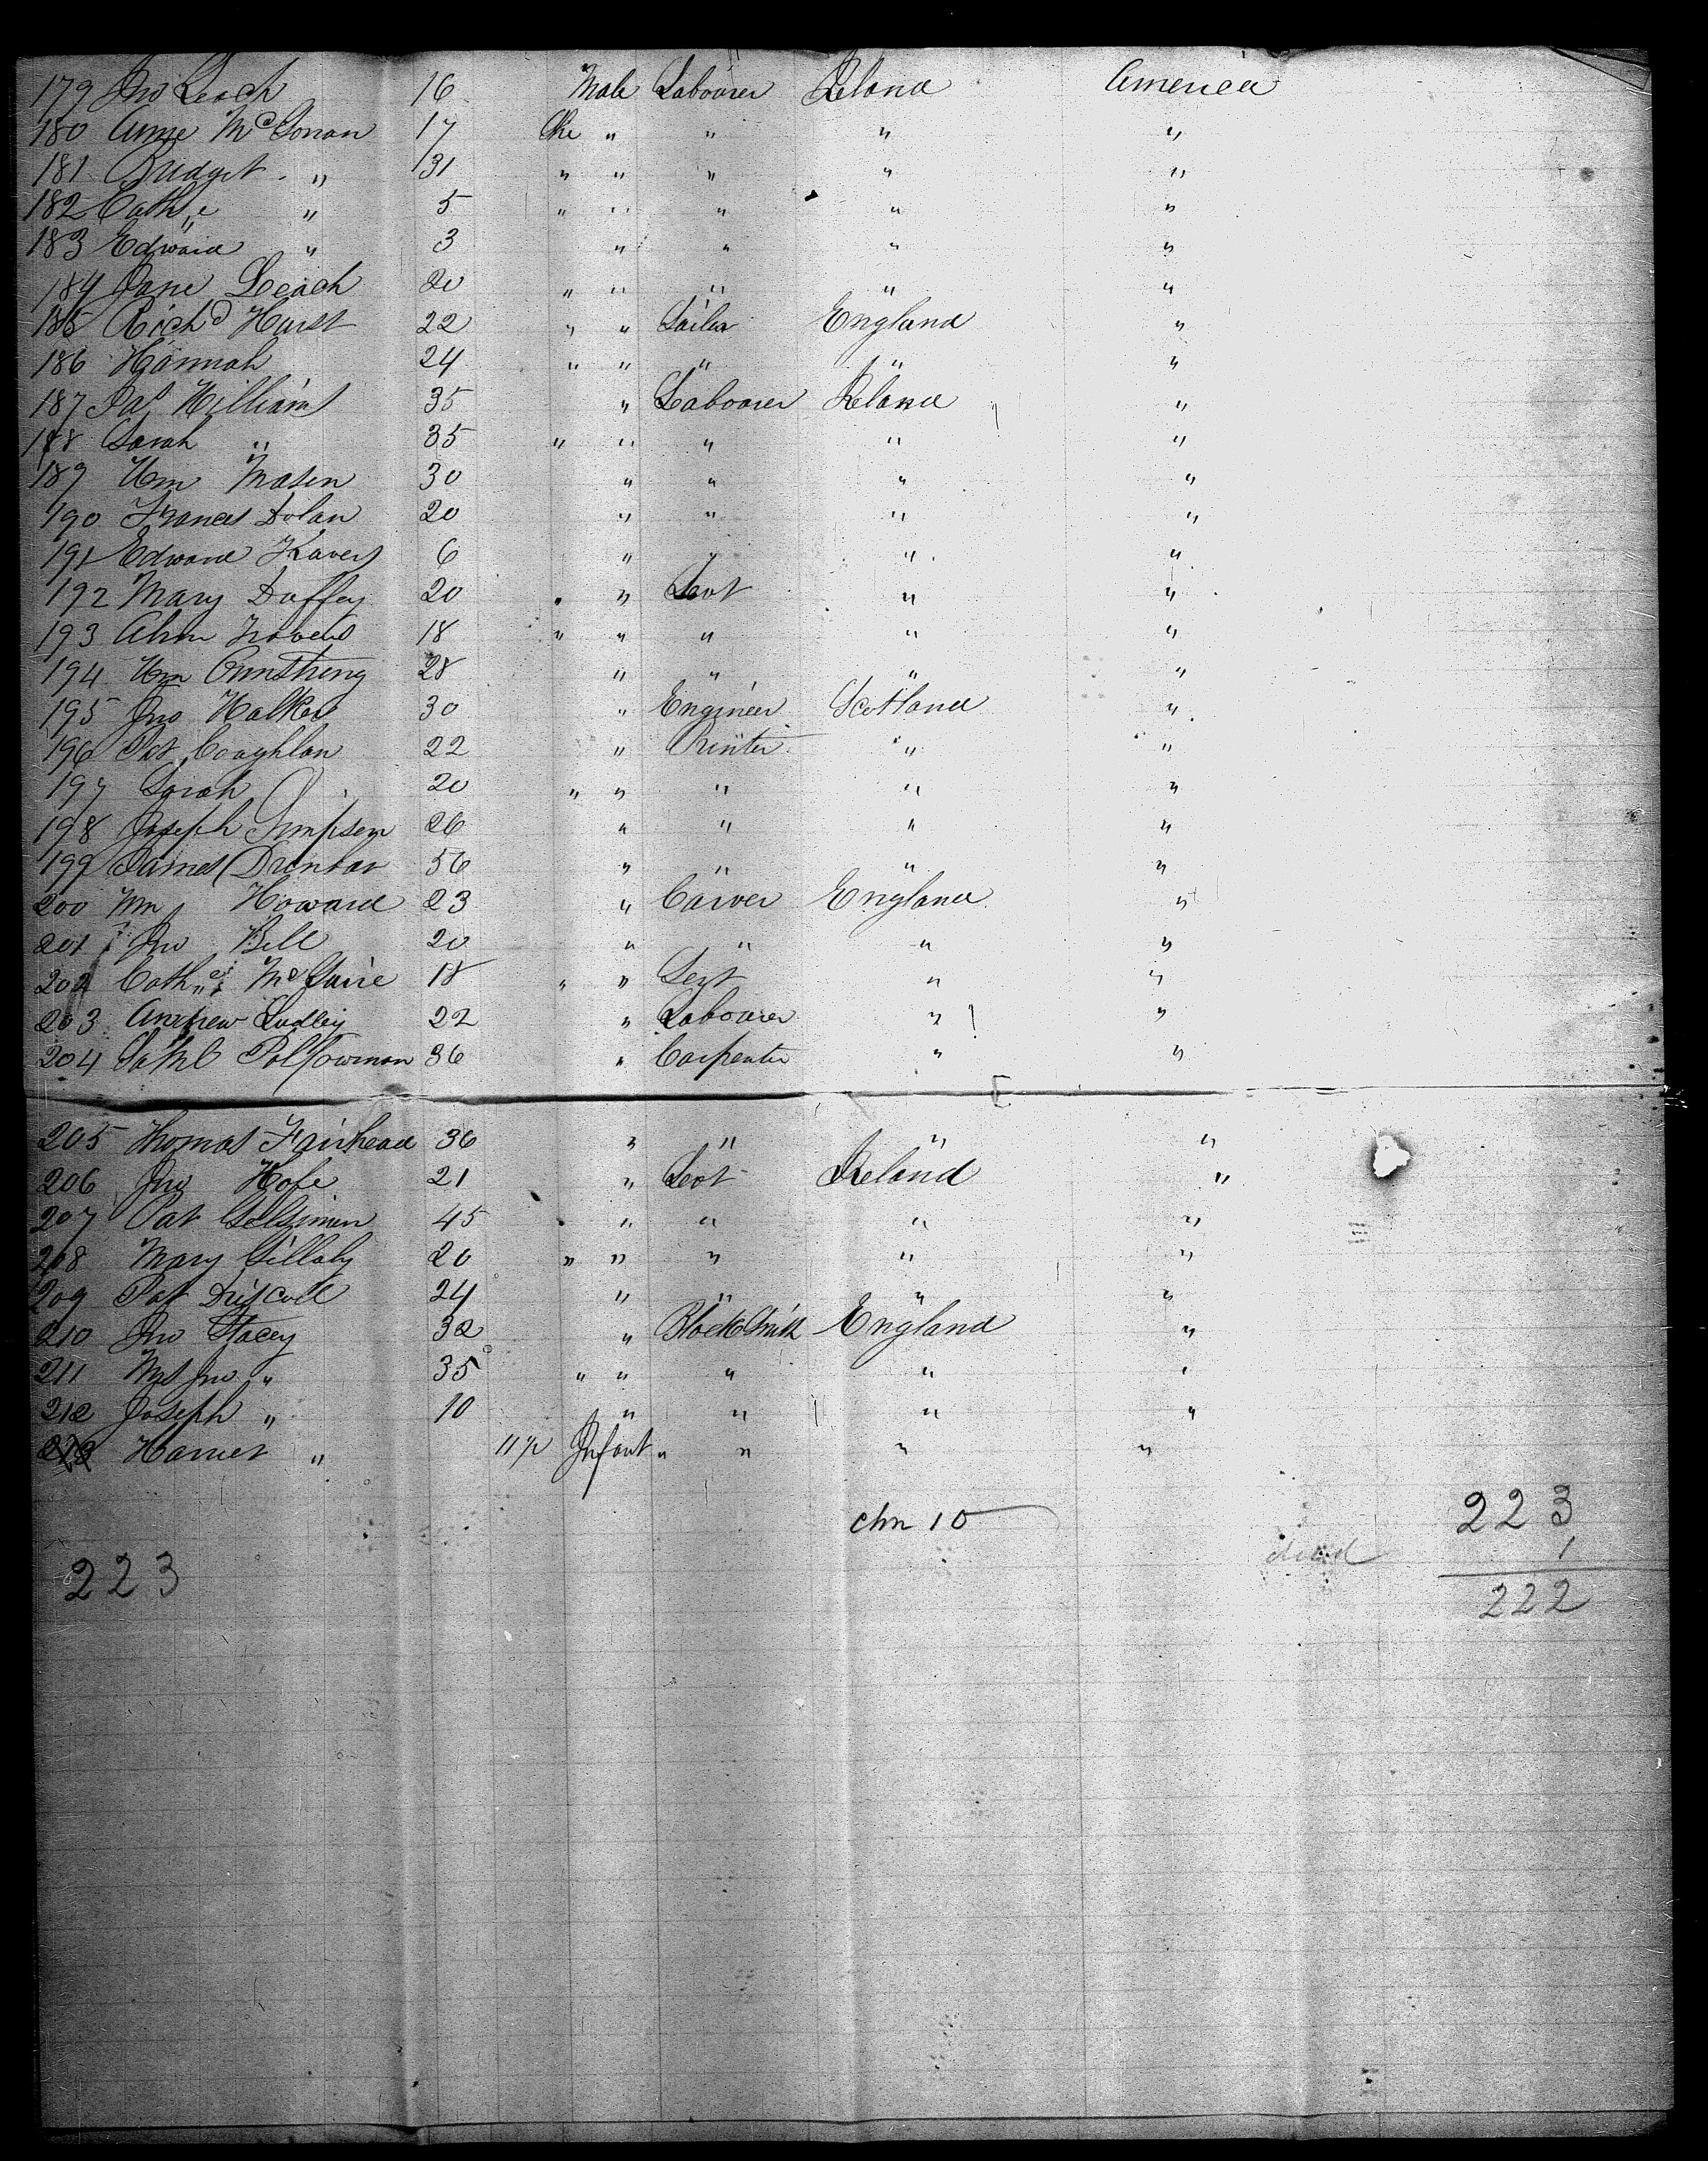 179 Jno Leach 16 Male Labourer Ireland America
180 Anne McGonan 17 the " " " "
181 Bridget " 31 " " " " "
182 Cathe " 5 " " " " "
183 Edward " 3 " " " "
184 Jane Leach 20 " " " " "
185 Richd Hurst 22 " " Sailor England "
186 Hannah 24 " " " " "
187 Jas Williams 35 " Labourer Ireland "
188 Sarah " 35 " " " " "
189 Wm Mason 30 " " " "
190 Frances Dolan 20 " " " "
191 Edward Travers 6 " " " "
192 Mary Duffey 20 " " Servt " "
193 Ahn Travers 18 " " " " "
194 Wm Armstrong 28 " " " "
195 Jno Walker 30 " Engineer Scotland "
196 Pat Coughlan 22 " Printer " "
197 Sarah 20 " " " " "
198 Joseph Simpson 26 " " " "
199 James Dunbar 56 " " " "
200 Wm Howard 23 " Carver England "
201 Jno Bell 20 " " " "
202 Cathe McGuire 18 " " Servt " "
203 Andrew Ludley 22 " Labourer " "
204 Saml 36 " Carpenter " "
205 Thomas Fairhead 36 " " " "
206 Jno Hofe 21 " Servt Ireland "
207 Pat 45 " " " "
208 Mary Gillaly 20 " " " " "
209 Pat Driscoll 24 " " " "
210 Jno Stacey 32 " BlackSmith England "
211 Mrs Jno " 35 " " " " "
212 Joseph " 10 " " " "
213 Harriet " 11/12 Infant " " " "
chn 10
223
dead 1
223
222